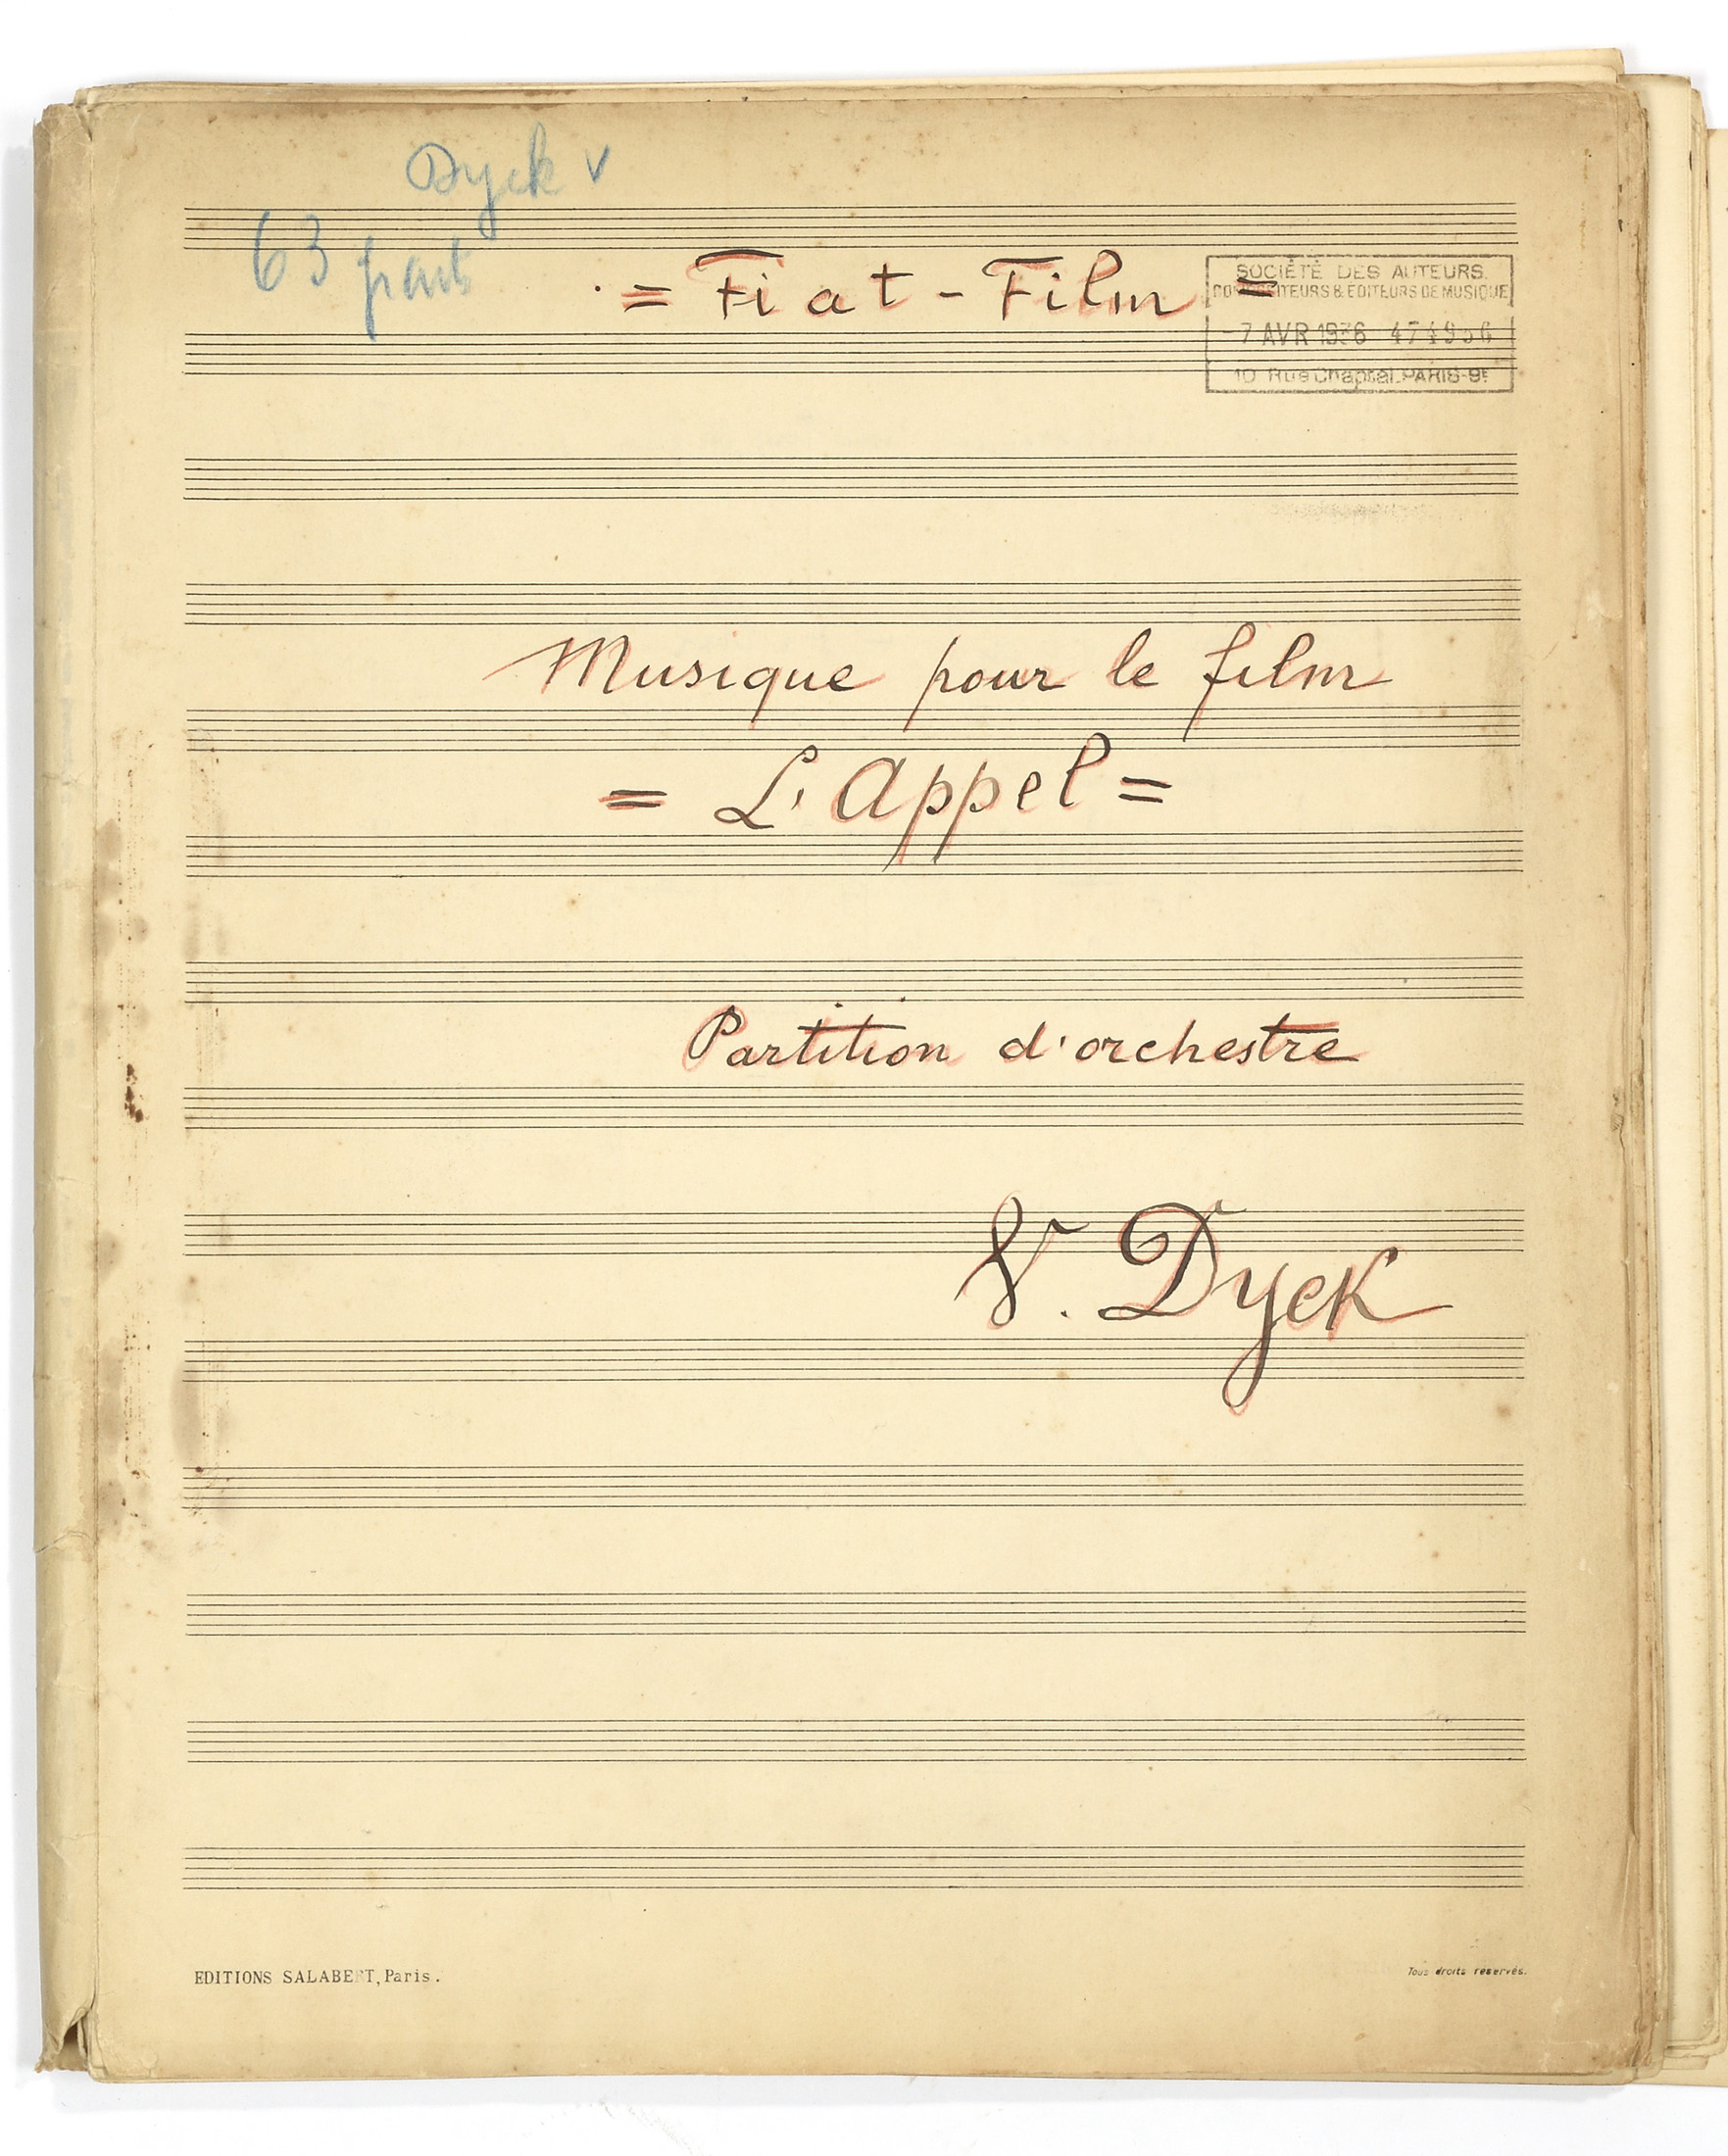 Dyck v
63 part
= Fiat - Film =
SOCIÉTÉ DES AUTEURS
COMPOSITEURS & EDITEURS DE MUSIQUE
- 7 AVR 1936
10 Rue Chaptal. PARIS-9E
Musique pour le film
= L'Appel =
Partition d'orchestre
V. Dyck
EDITIONS SALABERT, Paris.
Tous droits reservés.